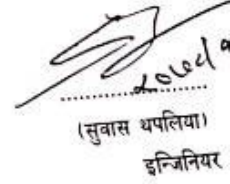 (सुवास थपलिया)
इन्जिनियर